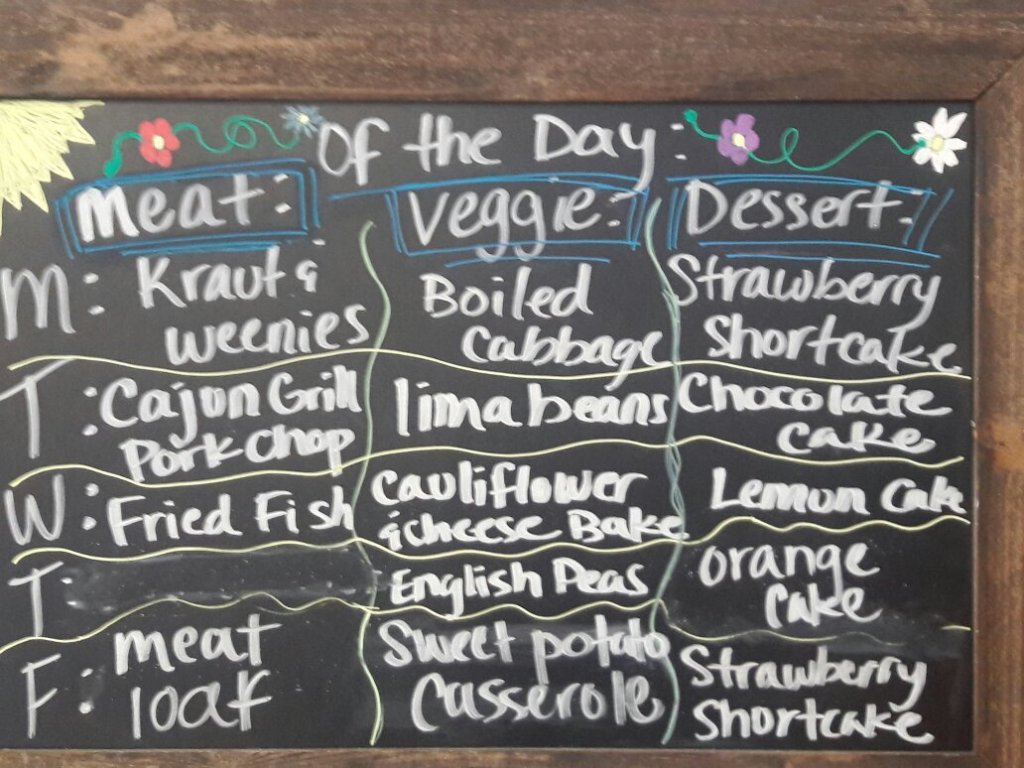 Of the Day:
Meat: Veggie: Dessert:
M: Kraut & weenies Boiled Cabbage Strawberry Shortcake
T: Cajun Grill Pork Chop lima beans Chocolate Cake
W: Fried Fish Cauliflower & cheese Bake Lemon Cake
T: English Peas orange Cake
F: meat loaf Sweet potato Casserole Strawberry Shortcake